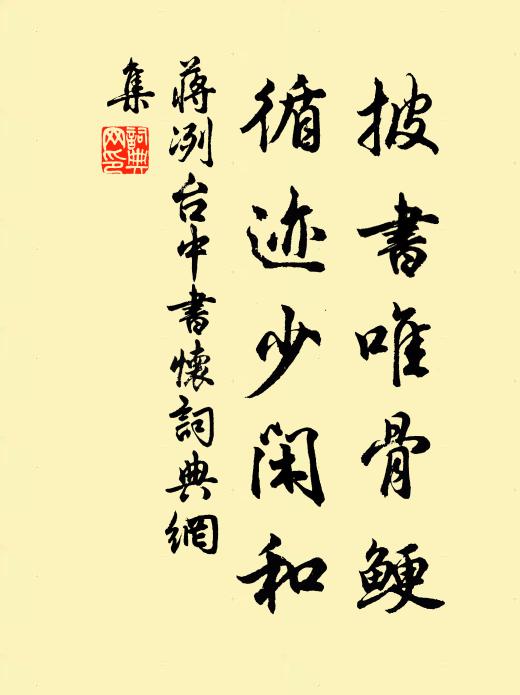 披書唯骨鯁
循迹少閑和
蔣冽台中書懷詞典網
集
詞典
网印